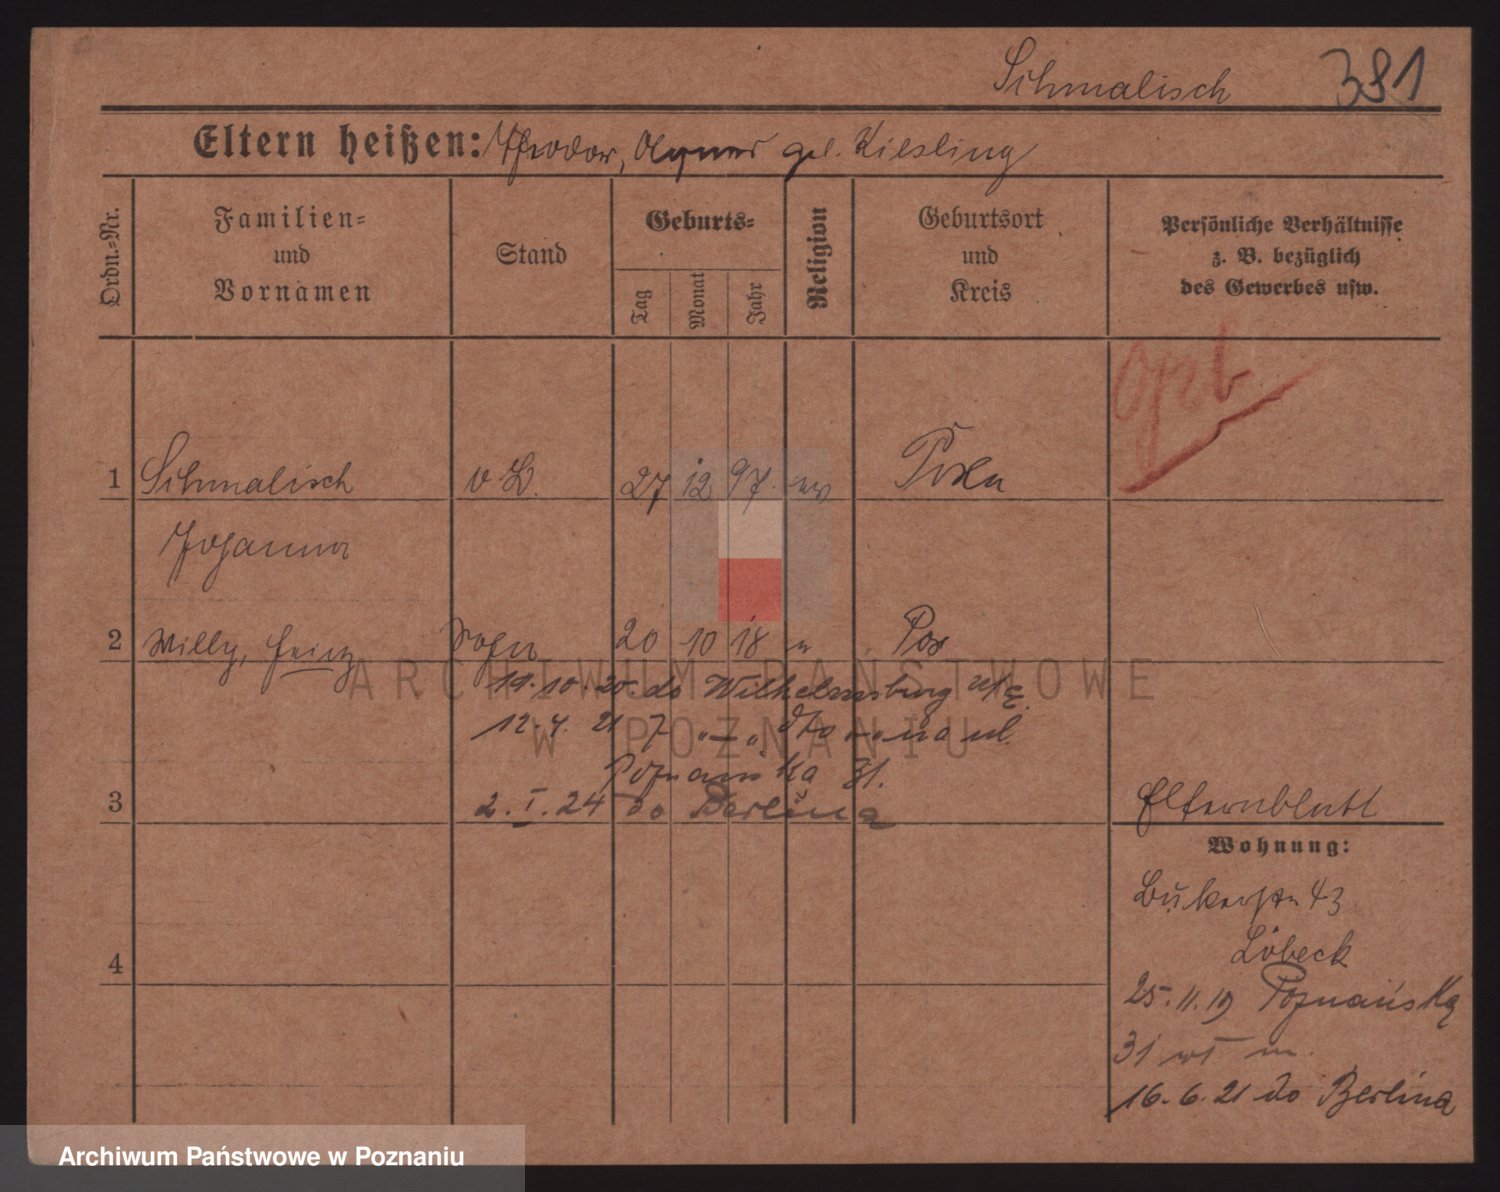 Schmalisch 381
Eltern heißen: Theodor, Agnes geb. Kiesling
Ordn.-Nr.
Familien-
und
Vornamen
Stand
Geburts-
Tag
Monat
Jahr
Religion
Geburtsort
und
Kreis
Persönliche Verhältnisse
z. B. bezüglich
des Gewerbes usw.
1 Schmalisch 27 12 97. ev Posen
Johanna
2 Willy, Heinz Sohn 20 10 18 " Pos
19.10.20. do Wilhelmsburg
12.4.21 z "—" dto — na ul.
Poznańska 31.
3 2.I.24 do Berlina
Elternblatt
Wohnung:
Bukerstr 43
Löbeck
4
25.11.19 Poznańska
31 m.
16.6.21 do Berlina
ARCHIWUM PAŃSTWOWE
W POZNANIU
Archiwum Państwowe w Poznaniu